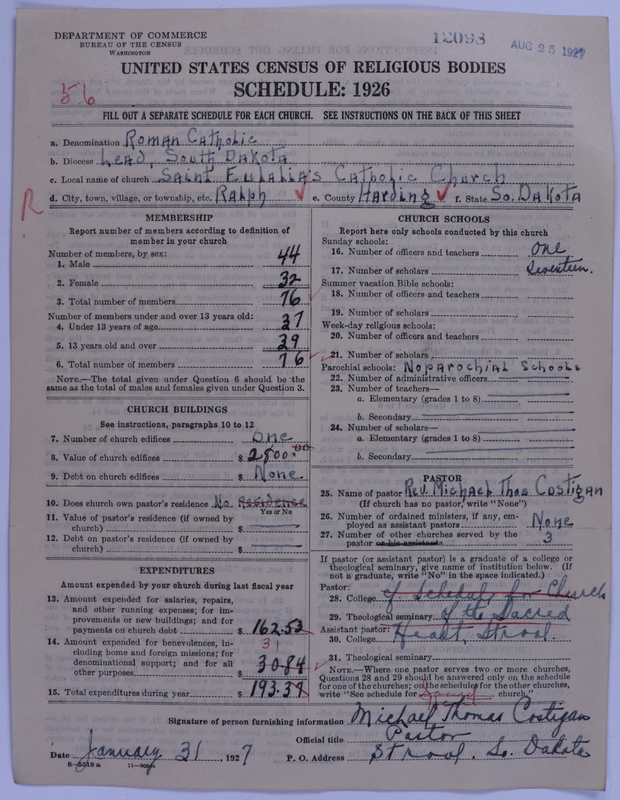 DEPARTMENT OF COMMERCE
BUREAU OF THE CENSUS
WASHINGTON
12093
AUG 25 1927
UNITED STATES CENSUS OF RELIGIOUS BODIES
SCHEDULE: 1926
56
FILL OUT A SEPARATE SCHEDULE FOR EACH CHURCH. SEE INSTRUCTIONS ON THE BACK OF THIS SHEET
a. Denomination Roman Catholic
b. Diocese Lead, South Dakota
c. Local name of church Saint Eulalia's Catholic Church
R
d. City, town, village, or township, etc. Ralph e. County Harding f. State So. Dakota
MEMBERSHIP
Report number of members according to definition of
member in your church
Number of members, by sex:
1. Male 44
2. Female 32
3. Total number of members 76
Number of members under and over 13 years old:
4. Under 13 years of age 37
5. 13 years old and over 39
6. Total number of members 76
NOTE.—The total given under Question 6 should be the
same as the total of males and females given under Question 3.
CHURCH BUILDINGS
See instructions, paragraphs 10 to 12
7. Number of church edifices One
8. Value of church edifices $ 2500.00
9. Debt on church edifices $ None
10. Does church own pastor's residence No Residence
Yes or No
11. Value of pastor's residence (if owned by
church) $
12. Debt on pastor's residence (if owned by
church) $
EXPENDITURES
Amount expended by your church during last fiscal year
13. Amount expended for salaries, repairs,
and other running expenses; for im-
provements or new buildings; and for
payments on church debt $ 162.53
14. Amount expended for benevolences, in-
cluding home and foreign missions; for
denominational support; and for all
other purposes $ 30.84
31
15. Total expenditures during year $ 193.37
CHURCH SCHOOLS
Report here only schools conducted by this church
Sunday schools:
16. Number of officers and teachers One
17. Number of scholars Seventeen.
Summer vacation Bible schools:
18. Number of officers and teachers
19. Number of scholars
Week-day religious schools:
20. Number of officers and teachers
21. Number of scholars
Parochial schools: No parochial Schools
22. Number of administrative officers
23. Number of teachers—
a. Elementary (grades 1 to 8)
b. Secondary
24. Number of scholars—
a. Elementary (grades 1 to 8)
b. Secondary
PASTOR
25. Name of pastor Rev. Michael Thos Costigan
(If church has no pastor, write "None")
26. Number of ordained ministers, if any, em-
ployed as assistant pastors None
27. Number of other churches served by the
pastor or his assistants 3
If pastor (or assistant pastor) is a graduate of a college or
theological seminary, give name of institution below. (If
not a graduate, write "No" in the space indicated.)
Pastor:
28. College of Schedule for Church
29. Theological seminary of the Sacred
Assistant pastor: Heart, Strool.
30. College
31. Theological seminary
NOTE.—Where one pastor serves two or more churches,
Questions 28 and 29 should be answered only on the schedule
for one of the churches; on the schedules for the other churches,
write "See schedule for Sacred church."
Signature of person furnishing information Michael Thomas Costigan
Official title Pastor
Date January 31, 1927 P. O. Address Strool. So. Dakota